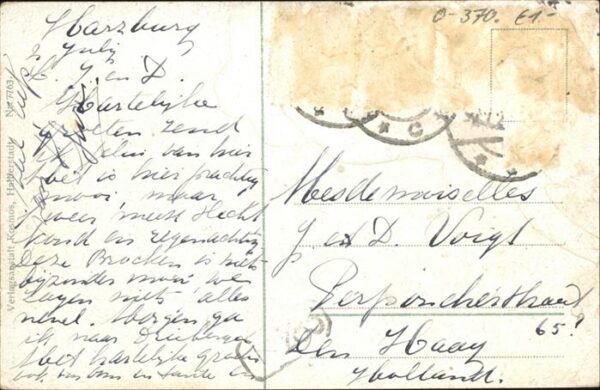 Harzburg
2 July
L. J. en D.
Hartelijke
groeten zend
ik van hier
het is hier prachtig
mooi, maar
weer meest slecht
koud en regenachtig
deze Brocken is niets
bijzonder mooi, we
zagen niets, alles
nevel. Morgen ga
ik naar
Met hartelijke groeten
ook van oom en tante en
Verlagsanstalt Kosmos, Halberstadt No. 7763
0-370. €1.-
Mesdemoiselles
J et D. Voigt
Perponcherstraat
65?
Den Haag
Holland.